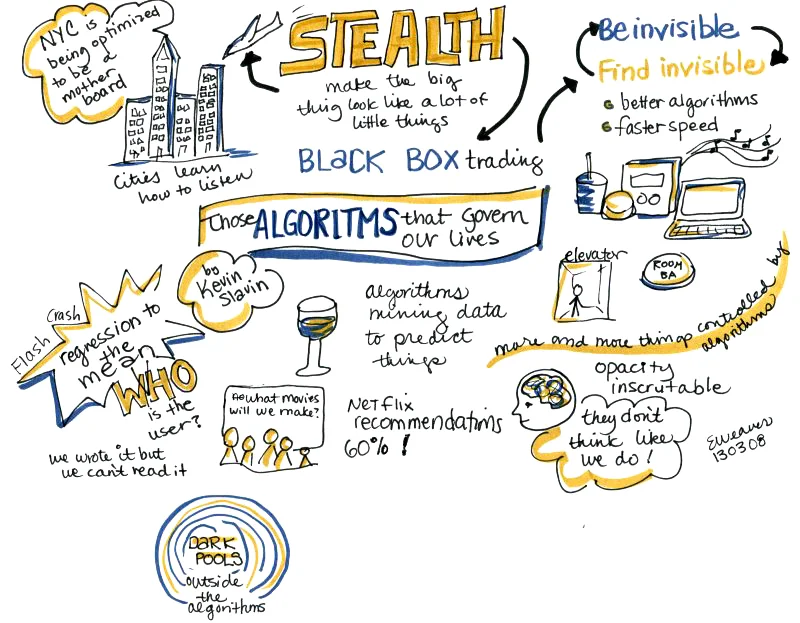 NYC is
being optimized
to be a
mother
board
cities learn
how to listen
STEALTH
make the big
thing look like a lot of
little things
BLACK BOX trading
Be invisible
Find invisible
better algorithms
faster speed
Those ALGORITMS that govern
our lives
by
Kevin
Slavin
Flash Crash
regression to
the
mean
WHO
is the
user?
we wrote it but
we can't read it
algorithms
mining data
to predict
things
what movies
will we make?
Netflix
recommendations
60% !
elevator
ROOM
BA
more and more things controlled by
algorithms
opacity
inscrutable
they don't
think like
we do!
EWeaver
130308
DARK
POOLS
outside
the
algorithms